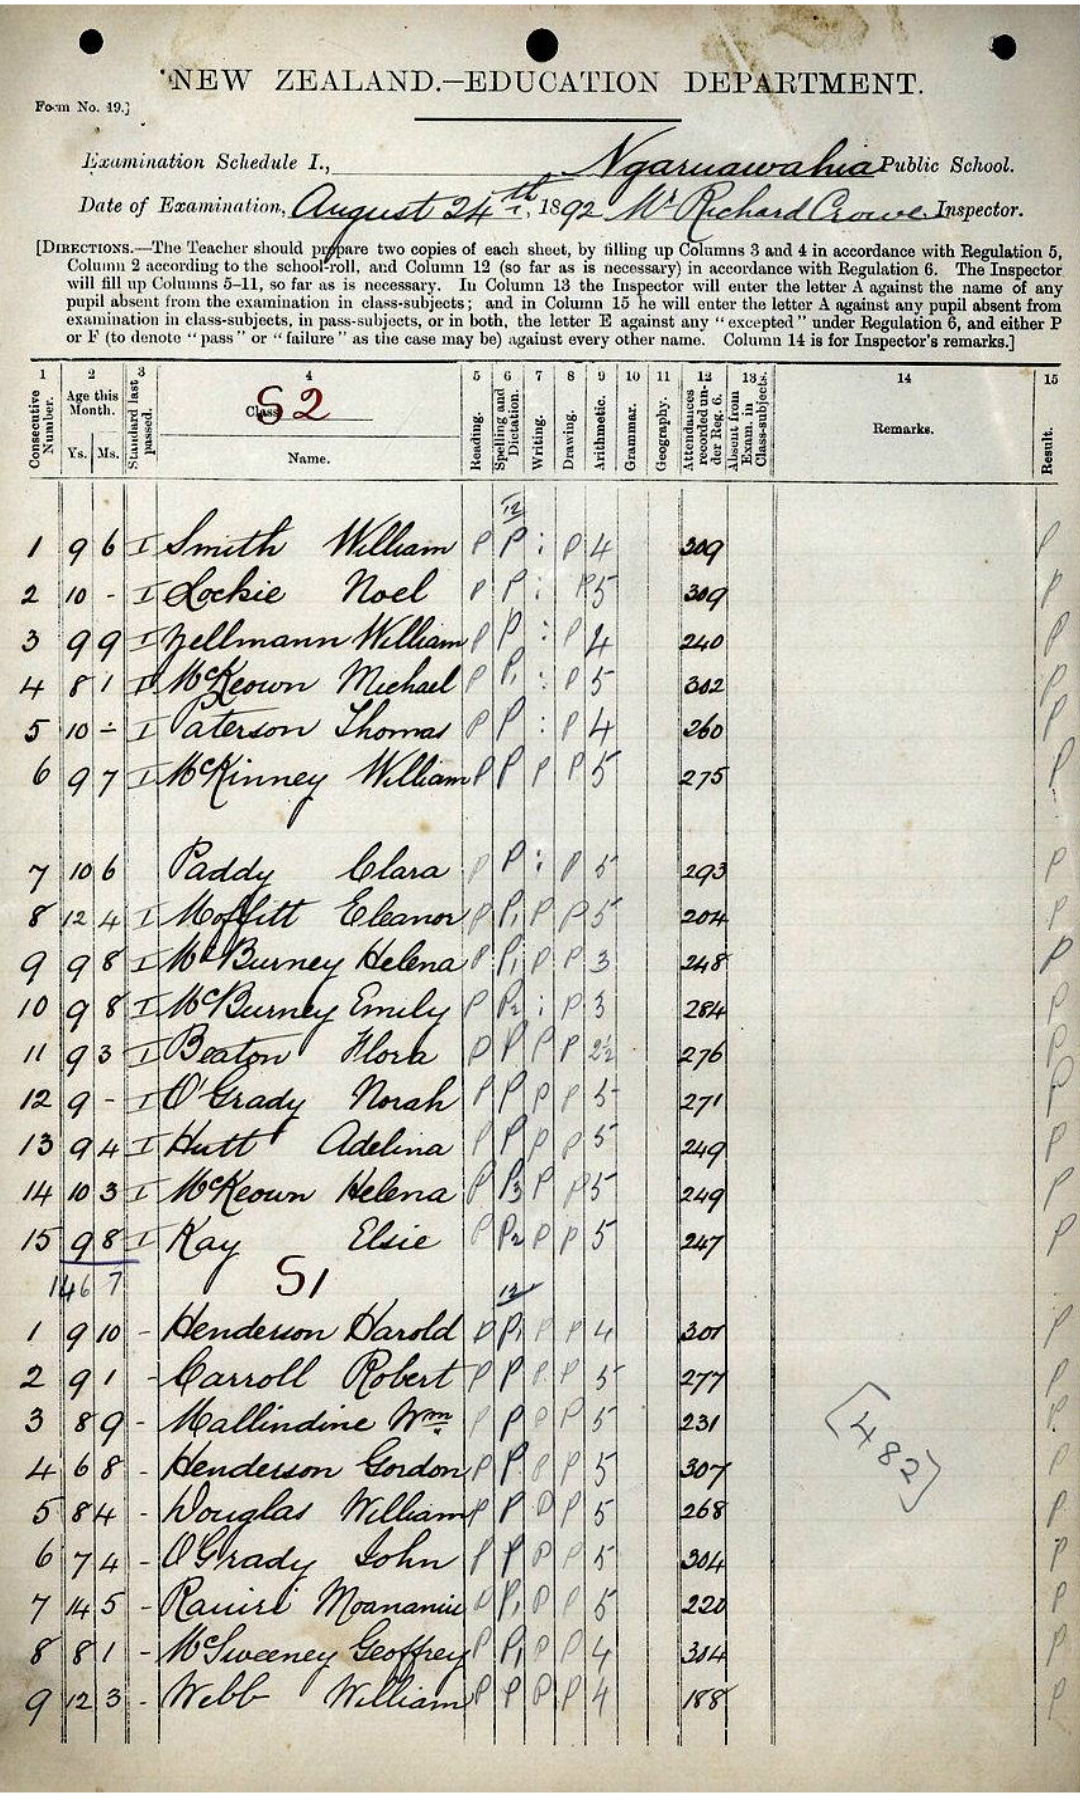 NEW ZEALAND.—EDUCATION DEPARTMENT.
Form No. 19.]
Examination Schedule I., Ngaruawahia Public School.
Date of Examination, August 24th, 1892 Mr Richard Crowe Inspector.
[DIRECTIONS.—The Teacher should prepare two copies of each sheet, by filling up Columns 3 and 4 in accordance with Regulation 5,
Column 2 according to the school-roll, and Column 12 (so far as is necessary) in accordance with Regulation 6. The Inspector
will fill up Columns 5–11, so far as is necessary. In Column 13 the Inspector will enter the letter A against the name of any
pupil absent from the examination in class-subjects; and in Column 15 he will enter the letter A against any pupil absent from
examination in class-subjects, in pass-subjects, or in both, the letter E against any "excepted" under Regulation 6, and either P
or F (to denote "pass" or "failure" as the case may be) against every other name. Column 14 is for Inspector's remarks.]
1 2 3 4 5 6 7 8 9 10 11 12 13 14 15
Consecutive Number. Age this Month. Ys. Ms. Standard last passed. Class S2 Name. Reading. Spelling and Dictation. Writing. Drawing. Arithmetic. Grammar. Geography. Attendances recorded under Reg. 6. Absent from Exam. in Class-subjects. Remarks. Result.
12
1 9 6 I Smith William P P : P 4 309 P
2 10 - I Lockie Noel P P : P 5 309 P
3 9 9 I Zellmann William P P : P 4 240 P
4 8 1 I McKeown Michael P P1 : P 5 302 P
5 10 ÷ I Paterson Thomas P P : P 4 260 P
6 9 7 I McKinney William P P P P 5 275 P
7 10 6 Paddy Clara P P : P 5 293 P
8 12 4 I Moffitt Eleanor P P1 P P 5 204 P
9 9 8 I McBurney Helena P P1 P P 3 248 P
10 9 8 I McBurney Emily P P2 : P 3 284 P
11 9 3 I Beaton Flora P P P P 2½ 276 P
12 9 - I O'Grady Norah P P P P 5 271 P
13 9 4 I Hutt Adelina P P P P 5 249 P
14 10 3 I McKeown Helena P P3 P P 5 249 P
15 9 8 I Kay Elsie P P2 P P 5 247 P
146 7 S1 12
1 9 10 - Henderson Harold P P1 P P 4 301 P
2 9 1 - Carroll Robert P P P P 5 277 P
3 8 9 - Mallindine Wm P P P P 5 231 P
4 6 8 - Henderson Gordon P P P P 5 307 P
(482)
5 8 4 - Douglas William P P P P 5 268 P
6 7 4 - O'Grady John P P P P 5 304 P
7 14 5 - Rauiri P P1 P P 5 220 P
8 8 1 - McSweeney Geoffrey P P1 P P 4 304 P
9 12 3 - Webb William P P P P 4 188 P